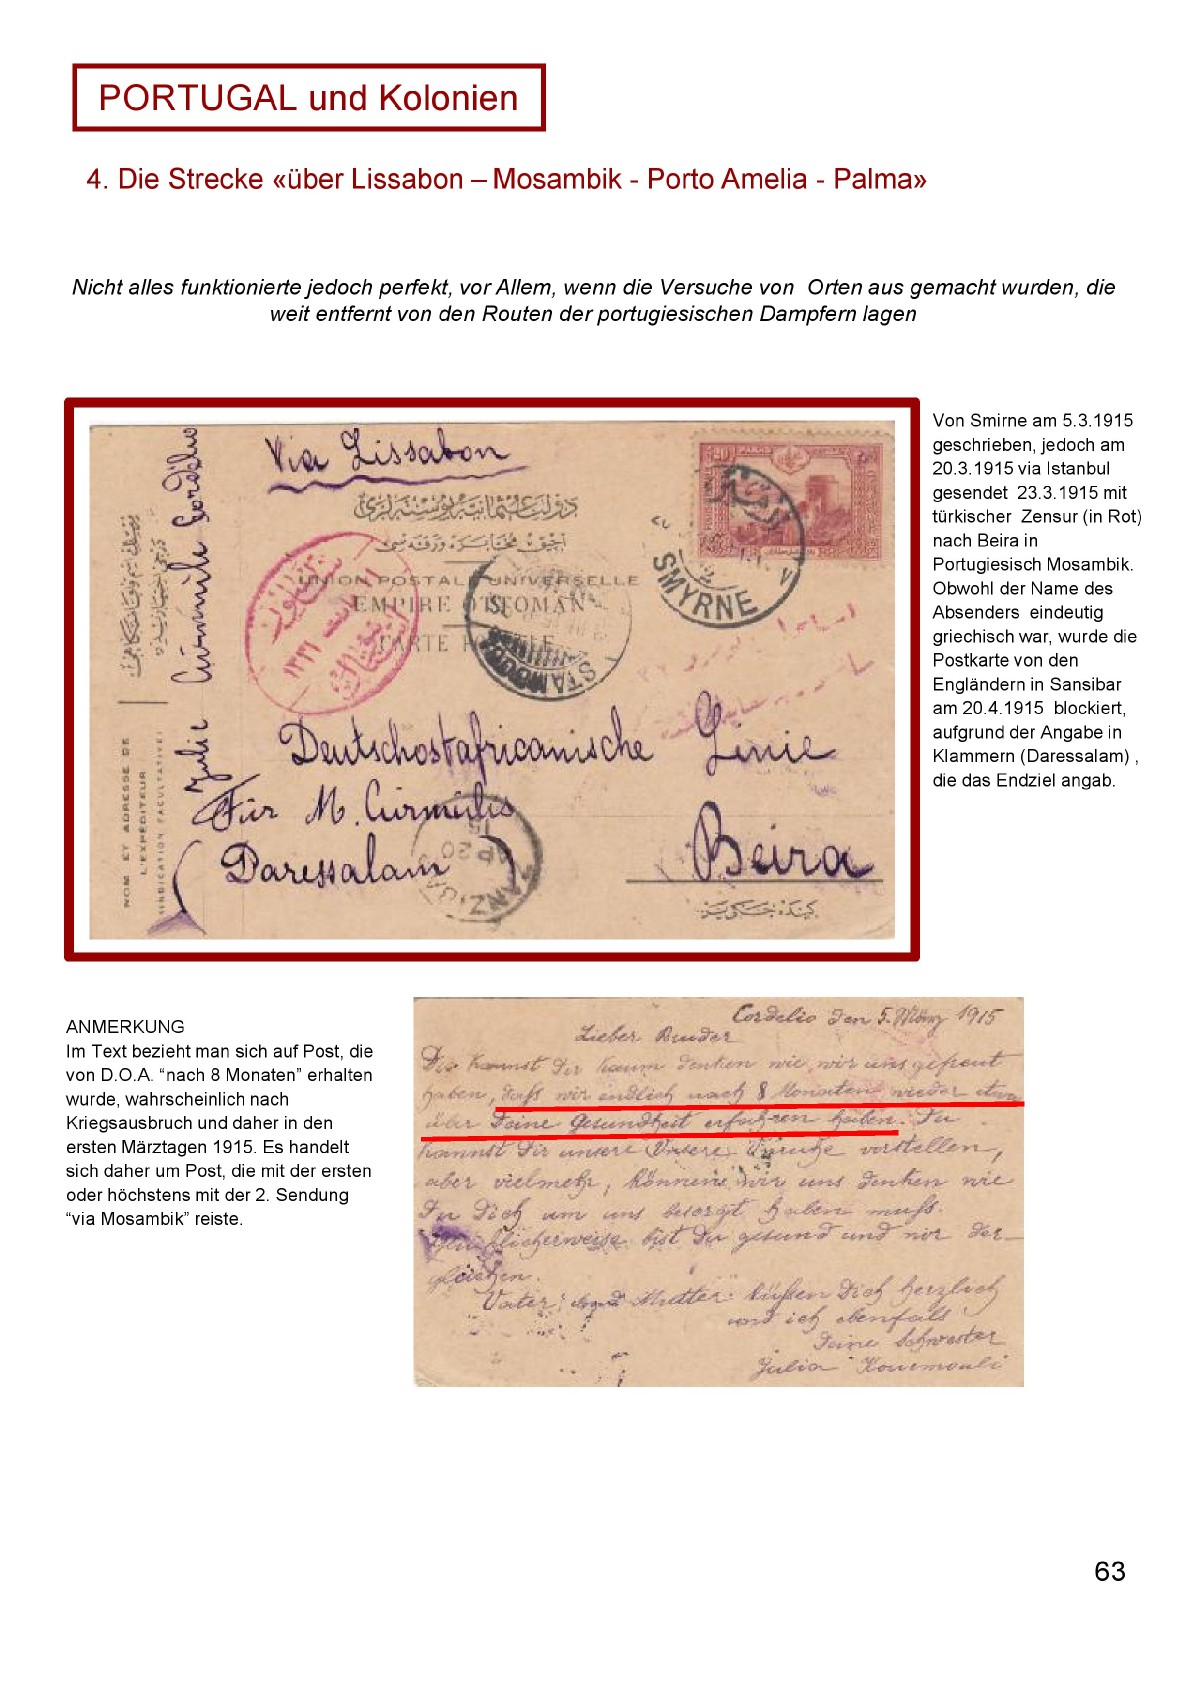 PORTUGAL und Kolonien
4. Die Strecke «über Lissabon – Mosambik - Porto Amelia - Palma»
Nicht alles funktionierte jedoch perfekt, vor Allem, wenn die Versuche von Orten aus gemacht wurden, die
weit entfernt von den Routen der portugiesischen Dampfern lagen
Via Lissabon
دولت عثمانیه پوسته لری
UNION POSTALE UNIVERSELLE
EMPIRE OTTOMAN
CARTE POSTALE
SMYRNE
STAMBOUL
Deutschostafricanische Linie
Für M. Cúrmúlis
(Daressalam)
Beira
ZANZIBAR
AP 20
15
NOM ET ADRESSE DE
L'EXPÉDITEUR
(INDICATION FACULTATIVE)
Julie Cúrmúli Cordélio
Von Smirne am 5.3.1915
geschrieben, jedoch am
20.3.1915 via Istanbul
gesendet 23.3.1915 mit
türkischer Zensur (in Rot)
nach Beira in
Portugiesisch Mosambik.
Obwohl der Name des
Absenders eindeutig
griechisch war, wurde die
Postkarte von den
Engländern in Sansibar
am 20.4.1915 blockiert,
aufgrund der Angabe in
Klammern (Daressalam) ,
die das Endziel angab.
ANMERKUNG
Im Text bezieht man sich auf Post, die
von D.O.A. “nach 8 Monaten” erhalten
wurde, wahrscheinlich nach
Kriegsausbruch und daher in den
ersten Märztagen 1915. Es handelt
sich daher um Post, die mit der ersten
oder höchstens mit der 2. Sendung
“via Mosambik” reiste.
Cordelio den 5. März 1915
Lieber Bruder
Du kannst Dir kaum denken wie wir uns gefreut
haben, daß wir endlich nach 8 Monaten wieder etwas
über Deine Gesundheit erfahren haben. Du
kannst Dir unsere Unruhe vorstellen,
aber vielmehr, können wir uns denken wie
Du Dich um uns besorgt haben muß.
Glücklicherweise bist Du gesund und wir der-
gleichen.
Vater und Mutter küßen Dich herzlich
und ich ebenfalls
Deine Schwester
Julia Kouemouli
63